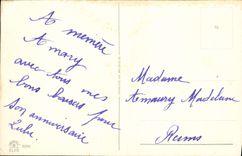 A memère
A mary
avec tous mes
bons baisers pour
son anniversaire
Lulu
Madame
Amaury Madelaine
Reims